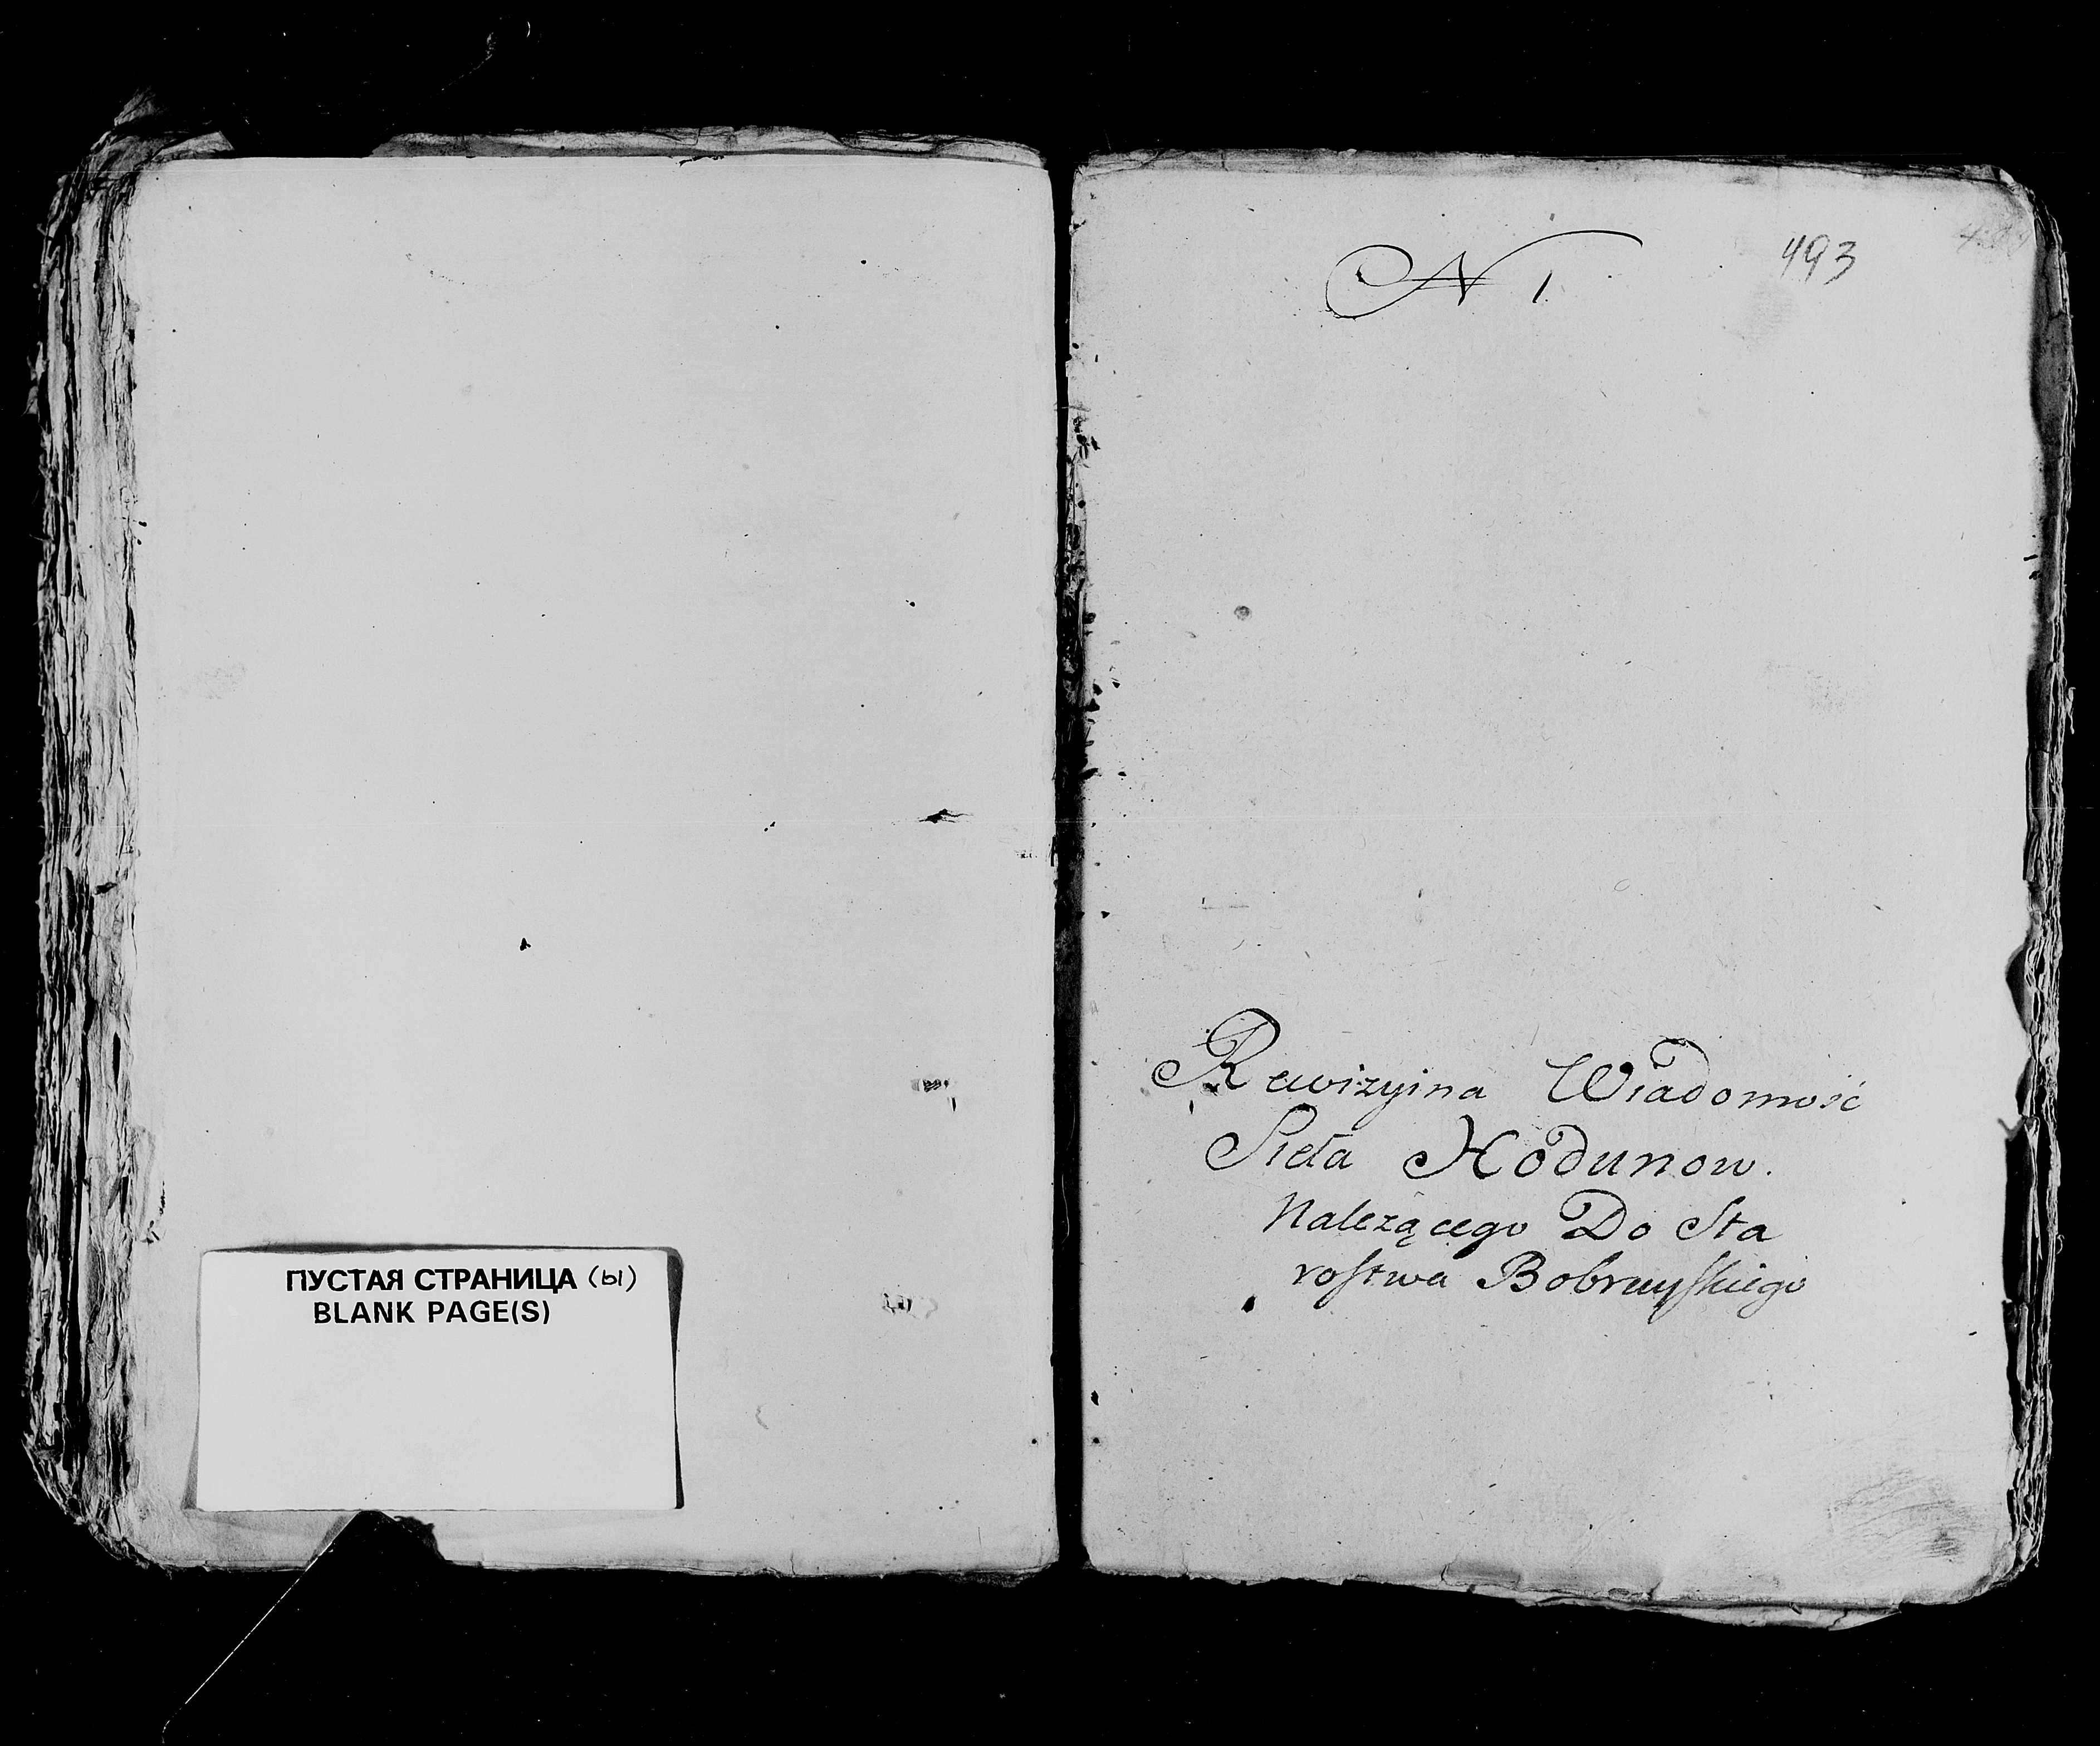 ПУСТАЯ СТРАНИЦА (ы)
BLANK PAGE(S)
N 1
493
Rewizyina Wiadomość
Sieła Hodunow.
Należącego Do Sta
rostwa Bobruyskiego